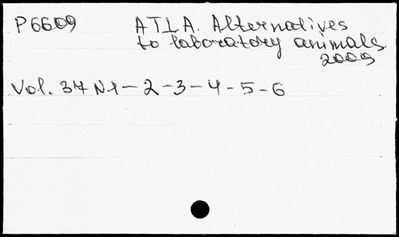 P6609 ATLA. Alternatives
to laboratory animals
2009
Vol. 37 N.1-2-3-4-5-6